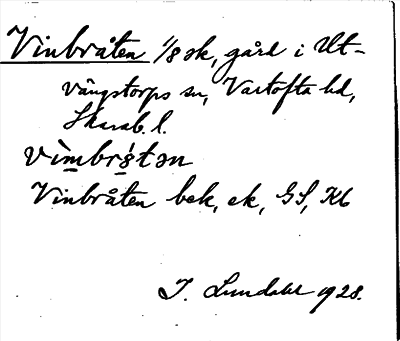 Vinbråten 1/8 sk, gård i Ut-
vängstorps sn, Vartofta hd,
Skarab. l.
Vinbråten bek, ek, GS, Kb
I. Lundahl 1928.